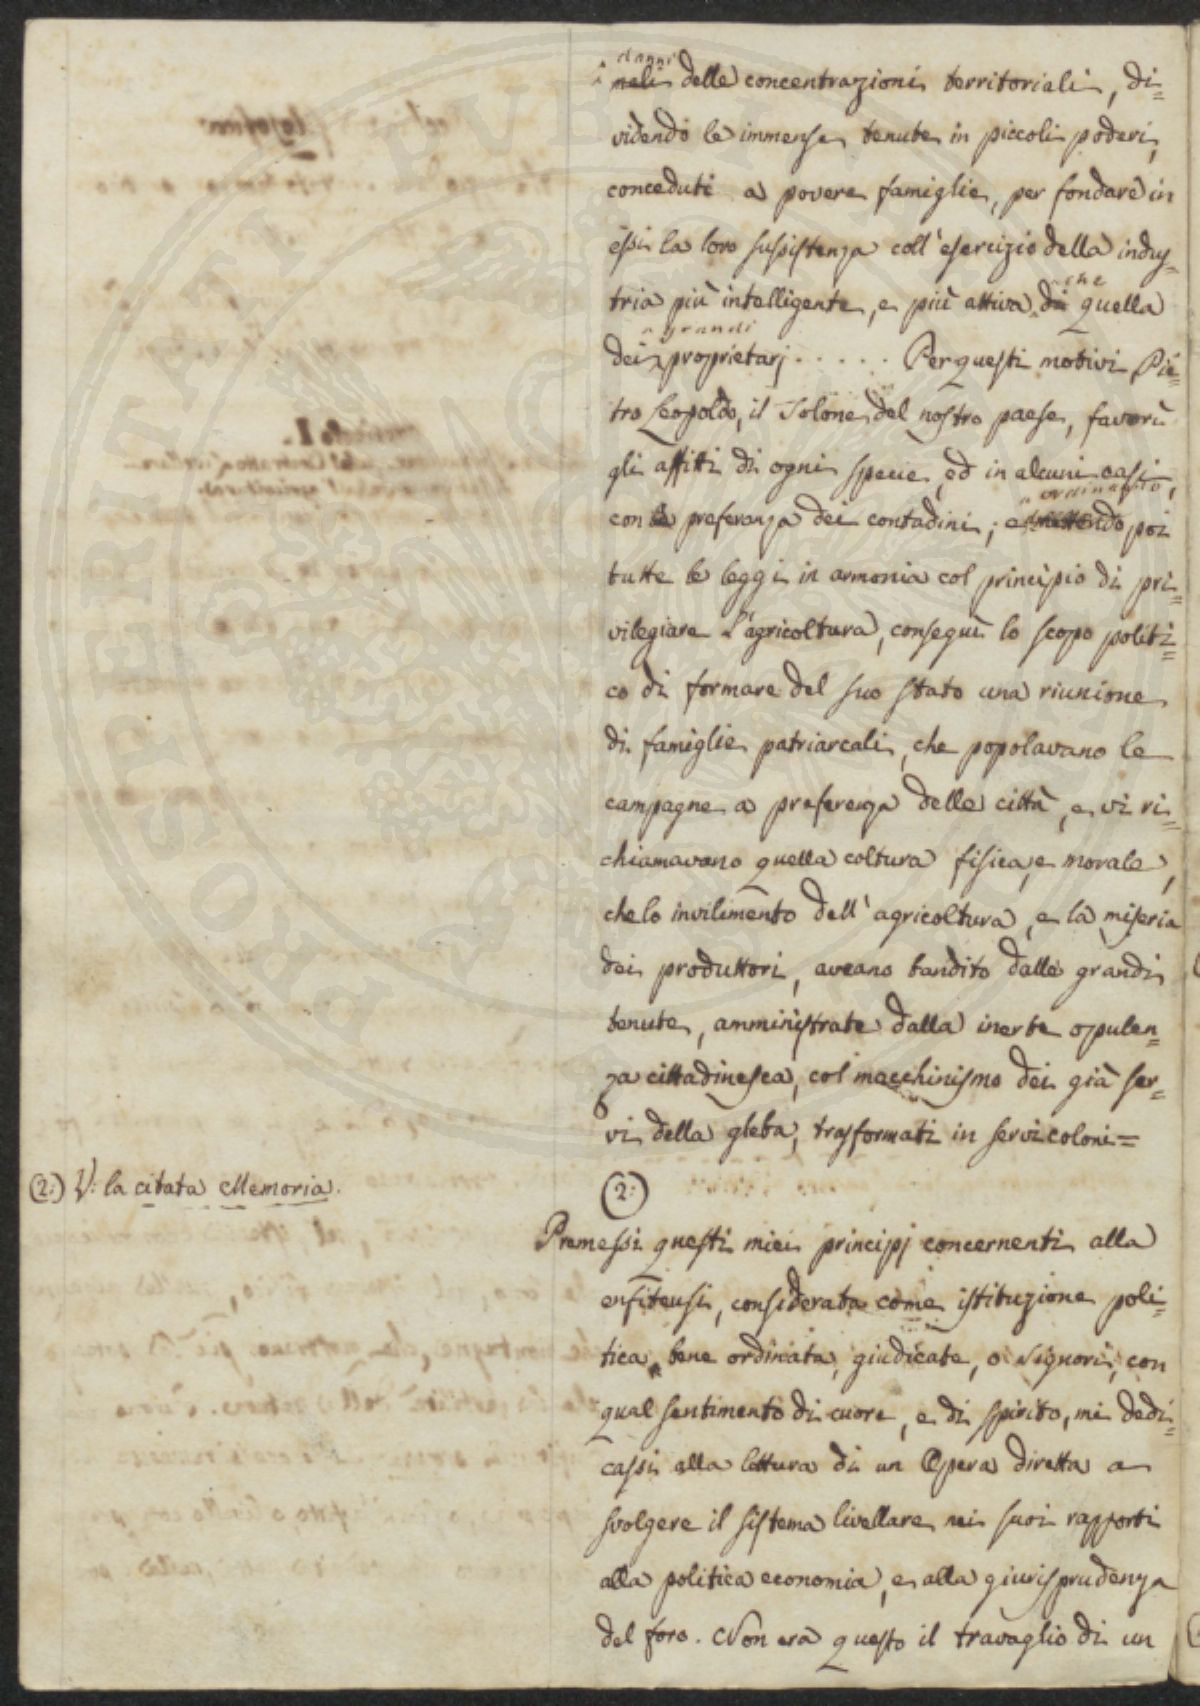 danni
mali delle concentrazioni territoriali, di=
videndo le immense tenute in piccoli poderi,
conceduti a povere famiglie, per fondare in
essi la loro sussistenza coll'esercizio della indus=
tria più intelligente, e più attiva di che quella
dei grandi proprietarj ..... Per questi motivi Pie=
tro Leopoldo, il Solone del nostro paese, favorì
gli affitti di ogni specie, ed in alcuni casi,
con la preferenza dei contadini; e ordinando poi
tutte le leggi in armonia col principio di pri=
vilegiare l'agricoltura, conseguì lo scopo politi=
co di formare del suo stato una riunione
di famiglie patriarcali, che popolavano le
campagne a preferenza delle città, e vi ri=
chiamavano quella coltura fisica, e morale,
che lo invilimento dell'agricoltura, e la miseria
dei produttori, aveano bandito dalle grandi
tenute, amministrate dalla inerte opulen=
za cittadinesca, col macchinismo dei già ser=
vi della gleba, trasformati in servi coloni=
(2:) V: la citata Memoria.
(2:)
Premessi questi miei principj concernenti alla
enfiteusi, considerata come istituzione poli=
tica bene ordinata, giudicate, o Signori, con
qual sentimento di cuore, e di spirito, mi dedi=
cassi alla lettura di un Opera diretta a
svolgere il sistema livellare nei suoi rapporti
alla politica economia, e alla giurisprudenza
del foro. Non era questo il travaglio di un
PROSPERITATI PUBLICAE